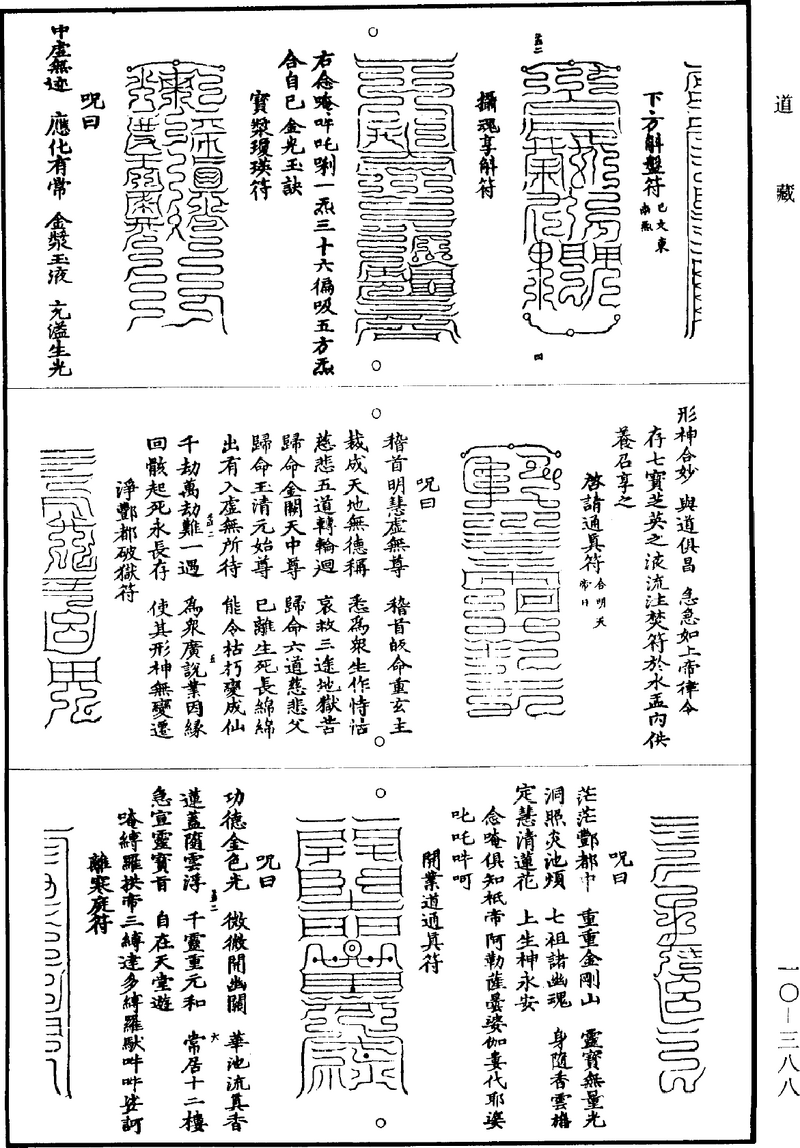 道藏
一〇—三八八
下方斛盤符
攝魂享斛符
右念唵吽吒唎一炁三十六徧吸五方炁
合自己金光玉訣
寶漿瓊瑛符
呪曰
中虛無迹 應化有常 金漿玉液 充溢生光
形神合妙 與道俱昌 急急如上帝律令
存七寶芝英之液流注焚符於水盂內供
養召享之
啓請通真符
呪曰
稽首明慧虛無尊 稽首皈命重玄主
裁成天地無德稱 悉為眾生作恃怙
慈悲五道轉輪迴 哀救三途地獄苦
歸命金闕天中尊 歸命六道慈悲父
歸命玉清元始尊 已離生死長綿綿
出有入虛無所待 能令枯朽變成仙
千劫萬劫難一遇 為眾廣說業因緣
回骸起死永長存 使其形神無變遷
淨酆都破獄符
呪曰
茫茫酆都中 重重金剛山 靈寶無量光
洞照炎池煩 七祖諸幽魂 身隨香雲旛
定慧清蓮花 上生神永安
念唵俱知祇帝阿勒薩曇婆伽婁代耶娑
叱吒吽呵
開業道通真符
呪曰
功德金色光 微微開幽關 華池流真香
蓮蓋隨雲浮 千靈重元和 常居十二樓
急宣靈寶旨 自在天堂遊
唵縛羅拱帝三縛達多縛羅馱吽吽娑訶
離寒庭符